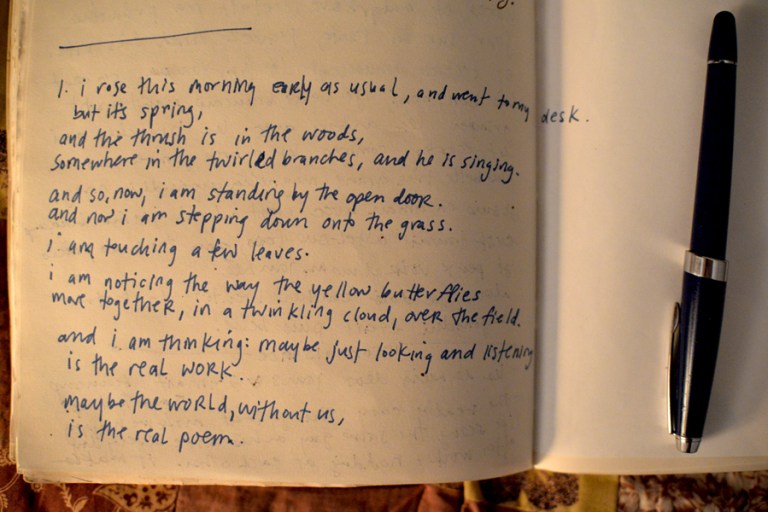 1. i rose this morning early as usual, and went to my desk.
but it's spring,
and the thrush is in the woods,
somewhere in the twirled branches, and he is singing.
and so, now, i am standing by the open door.
and now i am stepping down onto the grass.
i am touching a few leaves.
i am noticing the way the yellow butterflies
move together, in a twinkling cloud, over the field.
and i am thinking: maybe just looking and listening
is the real work
maybe the world, without us,
is the real poem.